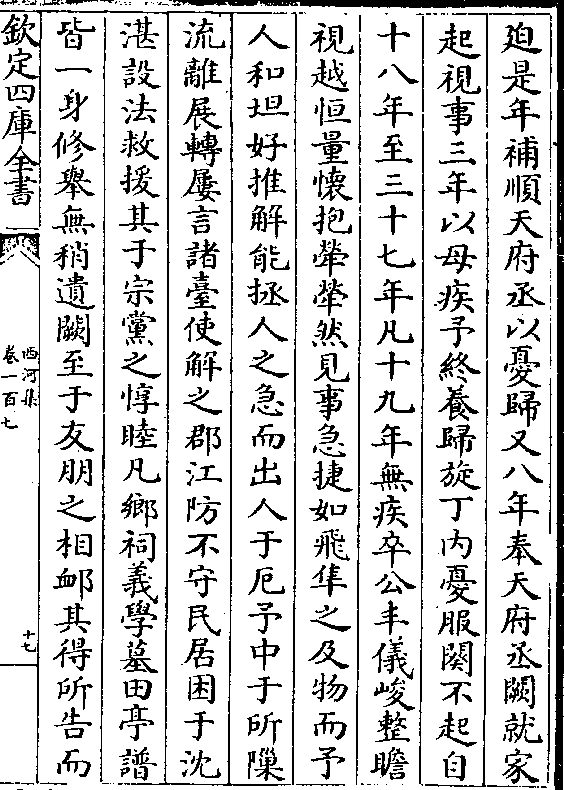 迫是年補順天府丞以憂歸又八年奉天府丞闕就家
起視事三年以母疾予終養歸旋丁内憂服闋不起自
十八年至三十七年凡十九年無疾卒公丰儀峻整瞻
視越恒量懷抱犖犖然見事急捷如飛隼之及物而予
人和坦好推解能拯人之急而出人于厄予中于所隟
流離展轉屢言諸臺使解之郡江防不守民居困于沈
湛設法救援其于宗黨之惇睦凡鄉祠義學墓田亭譜
皆一身修舉無稍遺闕至于友朋之相䘏其得所告而
欽定四庫全書
西河集
卷一百七
十七